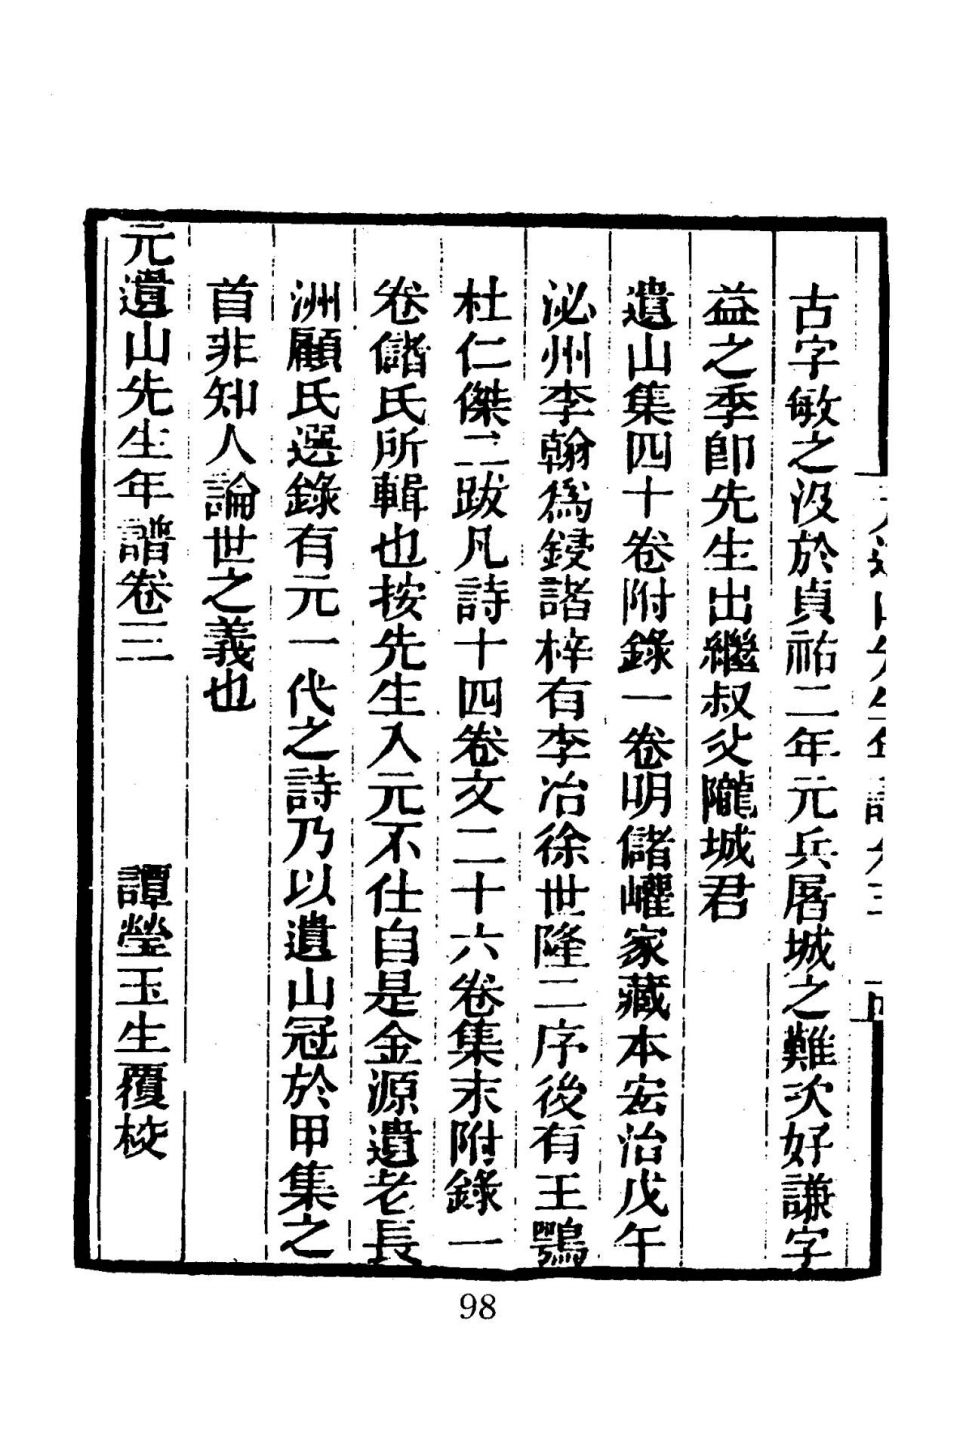 古字敏之沒於貞祐二年元兵屠城之難次好謙字
益之季卽先生出繼叔父隴城君
遺山集四十卷附錄一卷明儲巏家藏本宏治戊午
泌州李翰爲鋟諸梓有李冶徐世隆二序後有王鶚
杜仁傑二跋凡詩十四卷文二十六卷集末附錄一
卷儲氏所輯也按先生入元不仕自是金源遺老長
洲顧氏選錄有元一代之詩乃以遺山冠於甲集之
首非知人論世之義也
元遺山先生年譜卷三 譚瑩玉生覆校
98